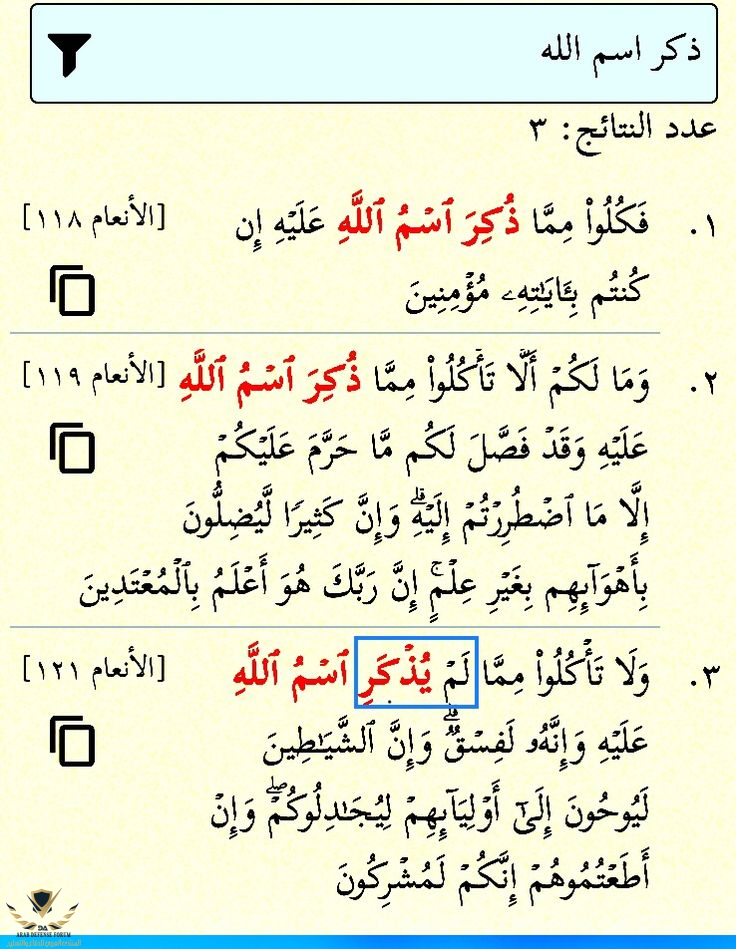 ذكر اسم الله
عدد النتائج: ٣
١. فَكُلُوا۟ مِمَّا ذُكِرَ ٱسْمُ ٱللَّهِ عَلَيْهِ إِن [الأنعام ١١٨]
كُنتُم بِـَٔايَـٰتِهِۦ مُؤْمِنِينَ
٢. وَمَا لَكُمْ أَلَّا تَأْكُلُوا۟ مِمَّا ذُكِرَ ٱسْمُ ٱللَّهِ [الأنعام ١١٩]
عَلَيْهِ وَقَدْ فَصَّلَ لَكُم مَّا حَرَّمَ عَلَيْكُمْ
إِلَّا مَا ٱضْطُرِرْتُمْ إِلَيْهِ ۗ وَإِنَّ كَثِيرًا لَّيُضِلُّونَ
بِأَهْوَآئِهِم بِغَيْرِ عِلْمٍ ۚ إِنَّ رَبَّكَ هُوَ أَعْلَمُ بِٱلْمُعْتَدِينَ
٣. وَلَا تَأْكُلُوا۟ مِمَّا لَمْ يُذْكَرِ ٱسْمُ ٱللَّهِ [الأنعام ١٢١]
عَلَيْهِ وَإِنَّهُۥ لَفِسْقٌ ۗ وَإِنَّ ٱلشَّيَـٰطِينَ
لَيُوحُونَ إِلَىٰٓ أَوْلِيَآئِهِمْ لِيُجَـٰدِلُوكُمْ ۖ وَإِنْ
أَطَعْتُمُوهُمْ إِنَّكُمْ لَمُشْرِكُونَ
ARAB DEFENSE FORUM